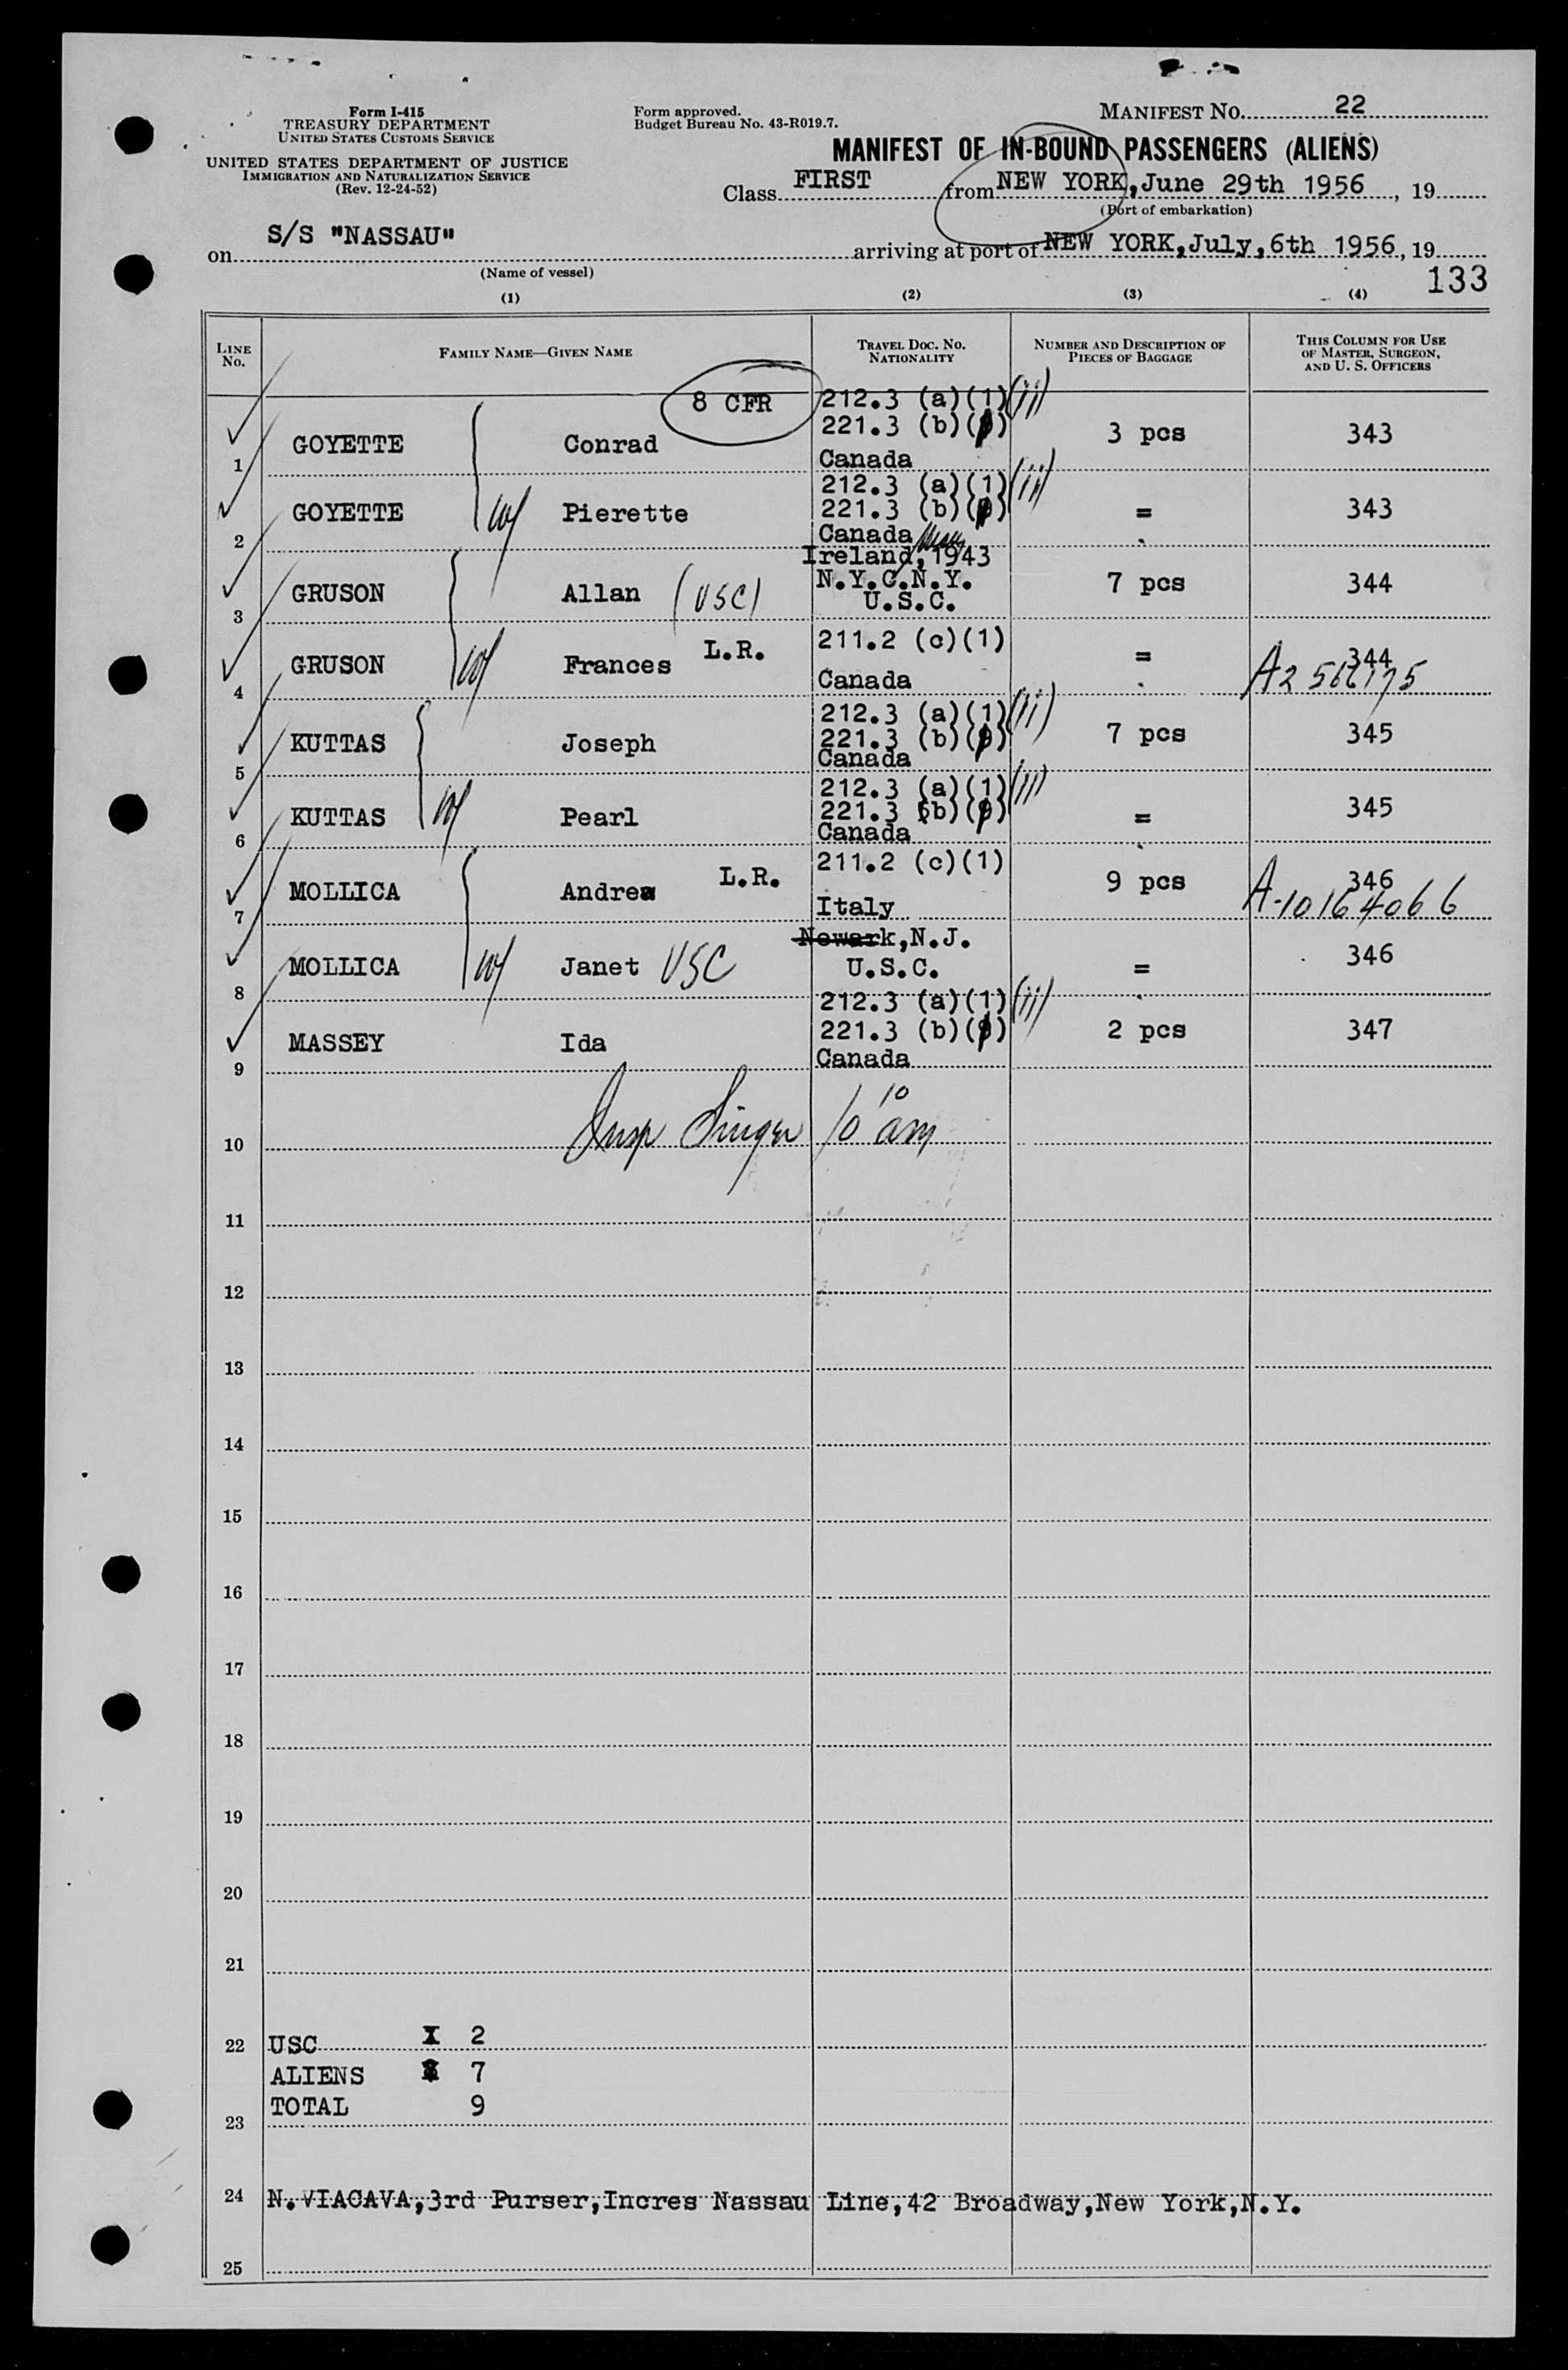 Form I-415
TREASURY DEPARTMENT
UNITED STATES CUSTOMS SERVICE
UNITED STATES DEPARTMENT OF JUSTICE
IMMIGRATION AND NATURALIZATION SERVICE
(Rev. 12-24-52)
Form approved.
Budget Bureau No. 43-R019.7.
MANIFEST NO. 22
MANIFEST OF IN-BOUND PASSENGERS (ALIENS)
Class FIRST from NEW YORK, June 29th 1956, 19
(Port of embarkation)
on S/S "NASSAU" arriving at port of NEW YORK, July, 6th 1956, 19
(Name of vessel)
133
(1) (2) (3) (4)
LINE NO. FAMILY NAME—GIVEN NAME TRAVEL DOC. NO. NATIONALITY NUMBER AND DESCRIPTION OF PIECES OF BAGGAGE THIS COLUMN FOR USE OF MASTER, SURGEON, AND U. S. OFFICERS
8 CFR 212.3 (a)(1)(ii)
221.3 (b)
1 GOYETTE Conrad Canada 3 pcs 343
212.3 (a)(1)(ii)
221.3 (b)
2 GOYETTE w/ Pierette Canada = 343
Ireland, 1943
N.Y.C.N.Y.
3 GRUSON Allan (USC) U.S.C. 7 pcs 344
211.2 (c)(1)
4 GRUSON w/ Frances L.R. Canada = 344
212.3 (a)(1)(ii)
221.3 (b)
5 KUTTAS Joseph Canada 7 pcs 345
212.3 (a)(1)(ii)
221.3 (b)
6 KUTTAS w/ Pearl Canada = 345
211.2 (c)(1)
7 MOLLICA Andrea L.R. Italy 9 pcs 346 A-10164066
Newark, N.J.
8 MOLLICA w/ Janet USC U.S.C. = 346
212.3 (a)(1)(ii)
221.3 (b)
9 MASSEY Ida Canada 2 pcs 347
10 Insp Singer 10 10 am
11
12
13
14
15
16
17
18
19
20
21
22 USC 2
ALIENS 7
TOTAL 9
23
24 N. VIACAVA, 3rd Purser, Incres Nassau Line, 42 Broadway, New York, N.Y.
25